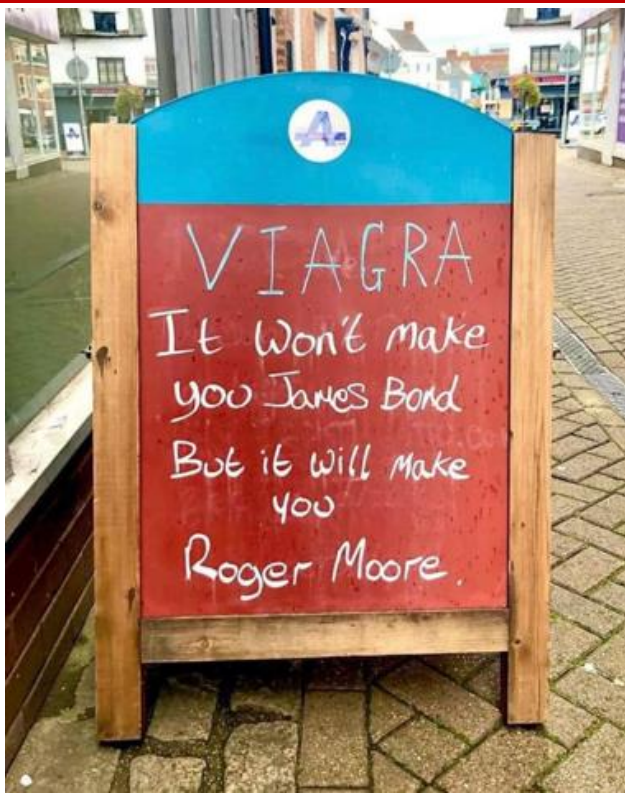 A
VIAGRA
It won't make
you James Bond
But it will make
you
Roger Moore.